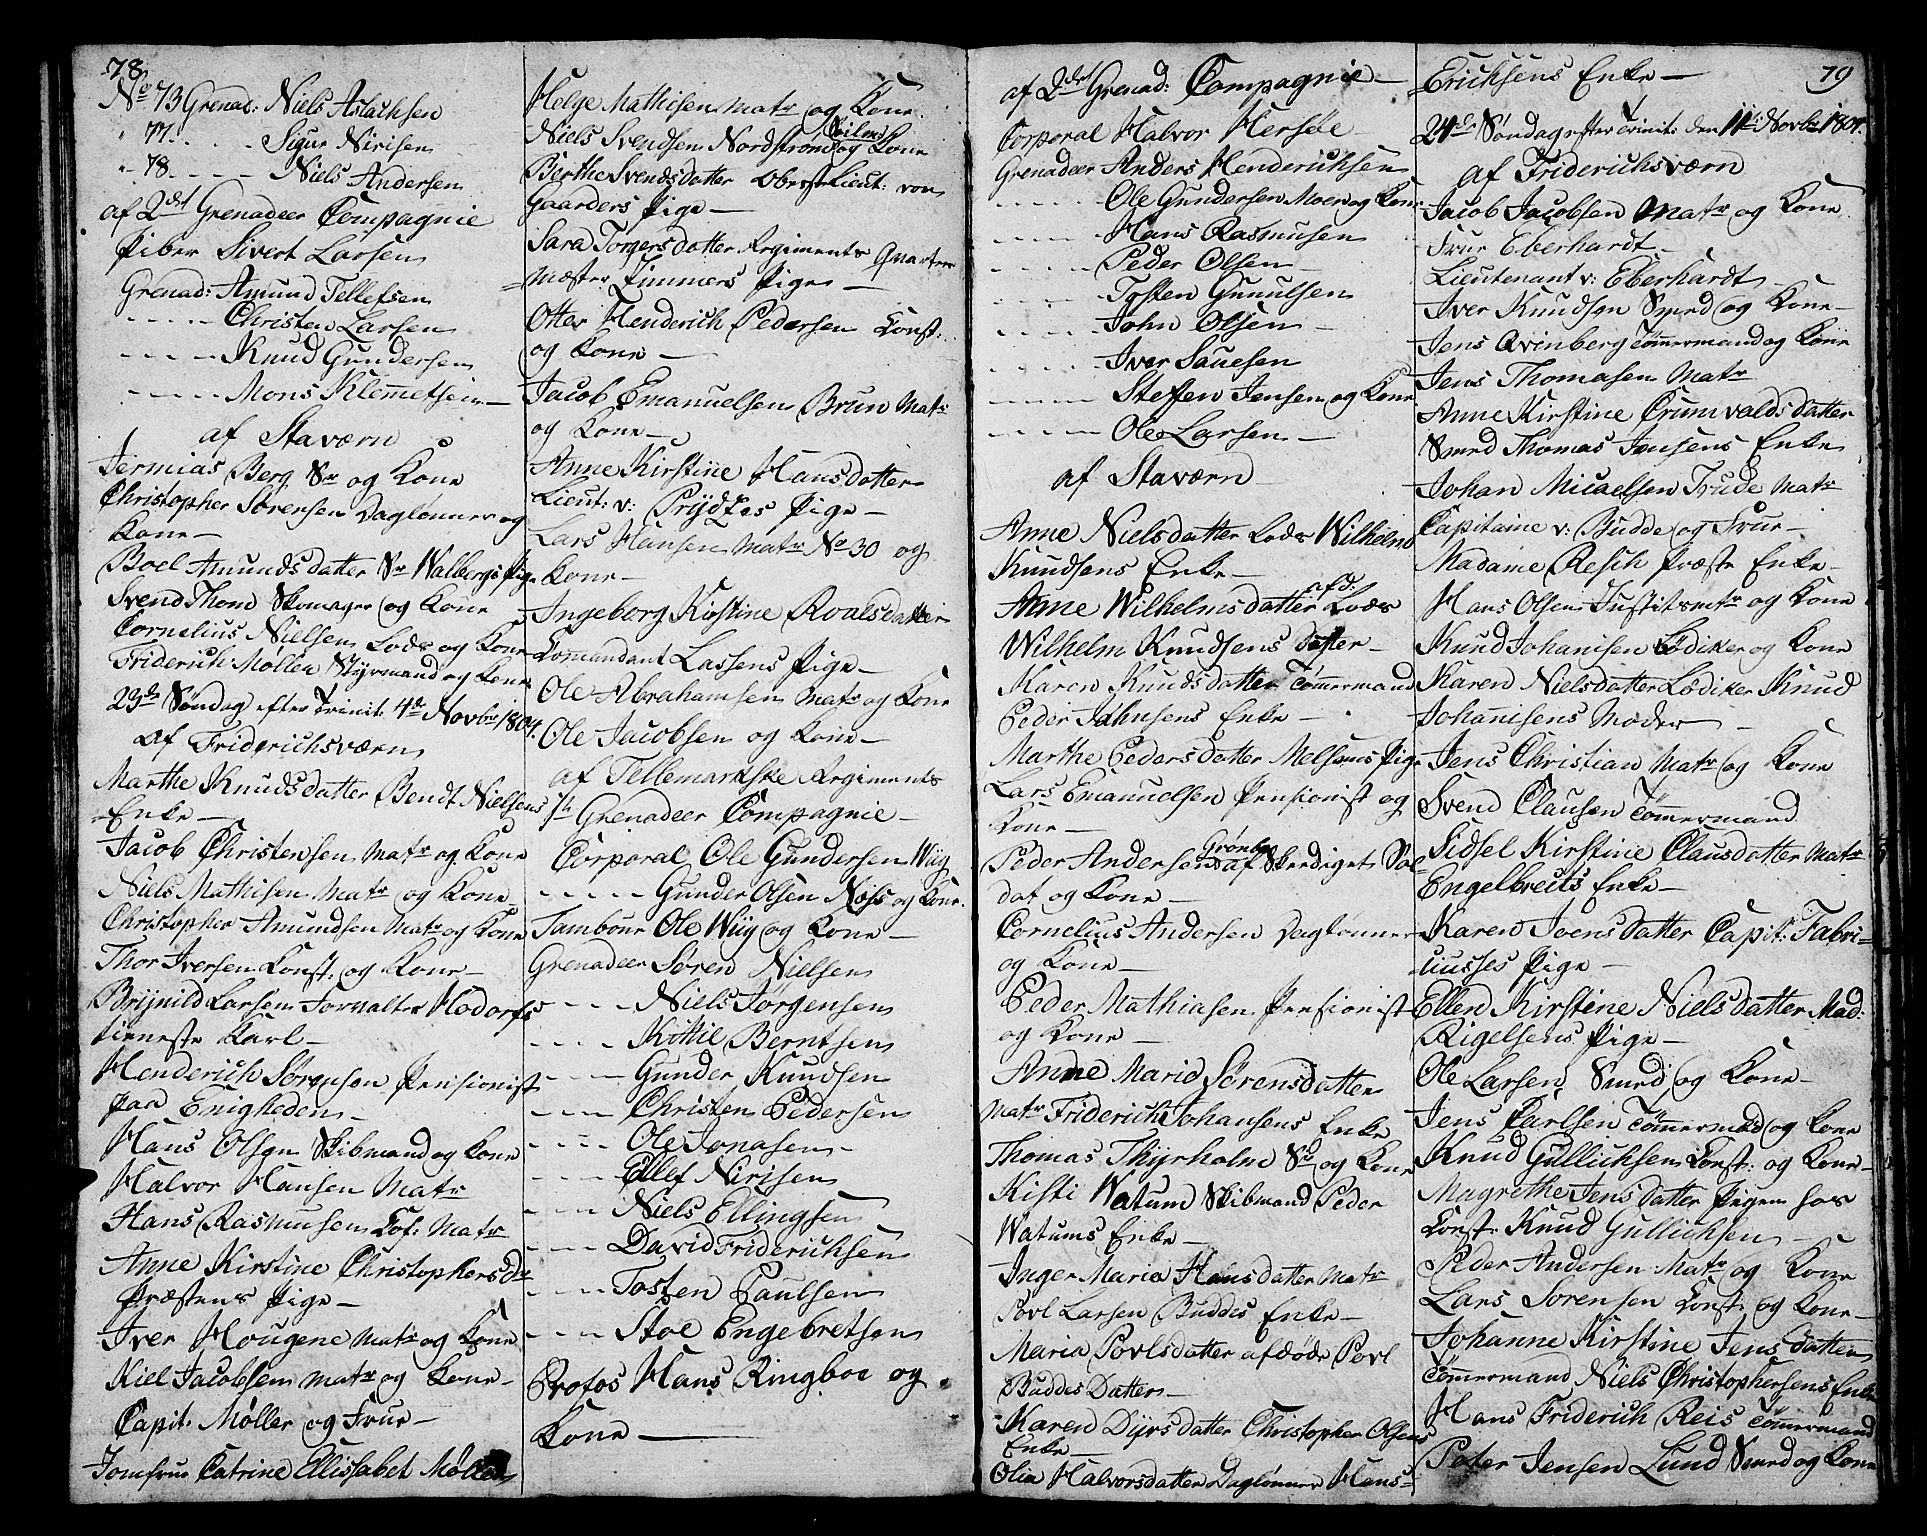 78.
No 73 Grenad: Niels Aslachsen
" 77. . . . Sigur Nirisen
" 78 - - - - Niels Andersen
af 2det Grenadeer Compagnie
Piber Sivert Larsen
Grenad: Amund Tellefsen
- - - - - Christen Larsen
- - - - - Knud Gundersen
- - - - - Mons Klemetsen
af Staværn
Jermias Berg Sr og Kone
Christopher Sørensen Daglønner og
Kone
Boel Amunds datter Sr Walbergs Pige
Svend Thom Skomager og Kone
Cornelius Nielsen Lods og Kone
Friderich Møller Styrmand og Kone
23de Søndag efter Trinit: 4de Novbr 1804.
af Friderichsværn
Marthe Knudsdatter Bendt Nielsens
Enke
Jacob Christensen Matr og Kone
Niels Mathisen Matr og Kone
Christopher Amundsen Matr og Kone
Thor Iversen Const: og Kone
Brijnild Larsen Forvalter Hodorfs
tieneste Karl
Henderich Sørensen Pensionist
paa Enigheden
Hans Olsen Skibmand og Kone
Halvor Hansen Matr
Hans Rasmusen Cof: Matr
Anne Kirstine Christophersdr
Præstens Pige
Iver Hougene Matr og Kone
Kiel Jacobsen Matr og Kone
Capit: Møller og Frue
Jomfrue Catrine Ellisabet Møller
Helge Mathisen Matr og Kone
Niels Svendsen Nordstrøm og Kone
Berthe Svends datter Oberst Lieut: von
Gaarders Pige
Sara Torgersdatter Regiments Quarteer
Mæster Zimmers Pige
Otter Henderich Pedersen Const:
og Kone
Jacob Emanuelsen Brun Matr
og Kone
Anne Kirstine Hansdatter
Lieut: v: Prydzes Pige
Lars Hansen Matr No 30 og
Kone
Ingeborg Kirstine Roalsdatter
Comandant Lassens Pige
Ole Abrahamsen Matr og Kone
Ole Jacobsen og Kone
af Tellemarkske Regiments
1te Grenadeer Compagnie
Corporal Ole Gundersen Wiig
- - - - Gunder Olsen Næss og Kone
Tambour Ole Wiig og Kone
Grenadeer Søren Nielsen
- - - - Niels Jørgensen
- - - - Kittil Berntsen
- - - - Gunder Knudsen
- - - - Christen Pedersen
- - - - Ole Jonasen
- - - - Ellef Nirisen
- - - - Niels Ellingsen
- - - - David Friderichsen
- - - - Tosten Paulsen
- - - - Stoe Engebretsen
Profos Hans Ringboe og
Kone
af 2det Grenad: Compagnie
Corporal Halvor Hersøe
Grenadeer Anders Henderichsen
- - - - - Ole Gundersen Moen og Kone
- - - - - Hans Rasmusen
- - - - - Peder Olsen
- - - - - Tosten Gunulsen
- - - - - John Olsen
- - - - - Iver Sauesen
- - - - - Steffen Jensen og Kone
- - - - - Ole Larsen
af Staværn
Anne Nielsdatter Lods Wilhelm
Knudsens Enke
Anne Wilhelmsdatter afd: Lods
Wilhelm Knudsens datter
Karen Knudsdatter Tømmermand
Peder Johnsens Enke
Marthe Pedersdatter Melsoms Pige
Lars Emanuelsen Pensionist og
Kone
Peder Andersen Grønbye af Skerdiget Sol-
dat og Kone
Cornelius Andersen Daglønner
og Kone
Peder Mathiasen Pensionist
og Kone
Anne Marie Sørensdatter
Matr Friderich Johansens Enke
Thomas Thyrholm Sr og Kone
Kisti Watum Skibmand Peder
Watums Enke
Inger Maria Hansdatter Matr
Povl Larsen Buddes Enke
Maria Povlsdatter afdøde Povl
Buddes Datter
Karen Dyrsdatter Christopher Olsens
Enke
Olia Halvorsdatter Daglønner Hans
79
Erichsens Enke
24de Søndag efter Trinit: den 11te Novbr 1804.
af Friderichsværn
Jacob Jacobsen Matr og Kone
Frue Eberhardt
Lieutenant v: Eberhardt
Iver Knudsen Smed og Kone
Jens Qvinberg Tømmermand og Kone
Jens Thomasen Matr
Anne Kirstine Crumvaldsdatter
Smed Thomas Jensens Enke
Johan Micaelsen Trude Matr
Capitaine v: Budde og Frue
Madame Resch Præste Enke
Hans Olsen Justitsmr og Kone
Knud Johanisen Bødiker og Kone
Karen Nielsdatter Bødiker Knud
Johanisens Moder
Jens Christian Matr og Kone
Svend Clausen Tømmermand
Sidsel Kirstine Clausdatter Matr
Engelbreits Enke
Karen Joensdatter Capit: Fabri-
ciusses Pige
Ellen Kirstine Nielsdatter Mad:
Rigelsens Pige
Ole Larsen Smed og Kone
Jens Carlsen Tømmermand og Kone
Knud Gullichsen Const: og Kone
Magrethe Jensdatter Pigen hos
Const: Knud Gullichsen
Peder Andersen Matr og Kone
Lars Sørensen Const: og Kone
Johanne Kirstine Jensdatter
Tømmermand Niels Christophersens Enke
Hans Friderich Reis Tømmermand
Peter Jensen Lund Smed og Kone